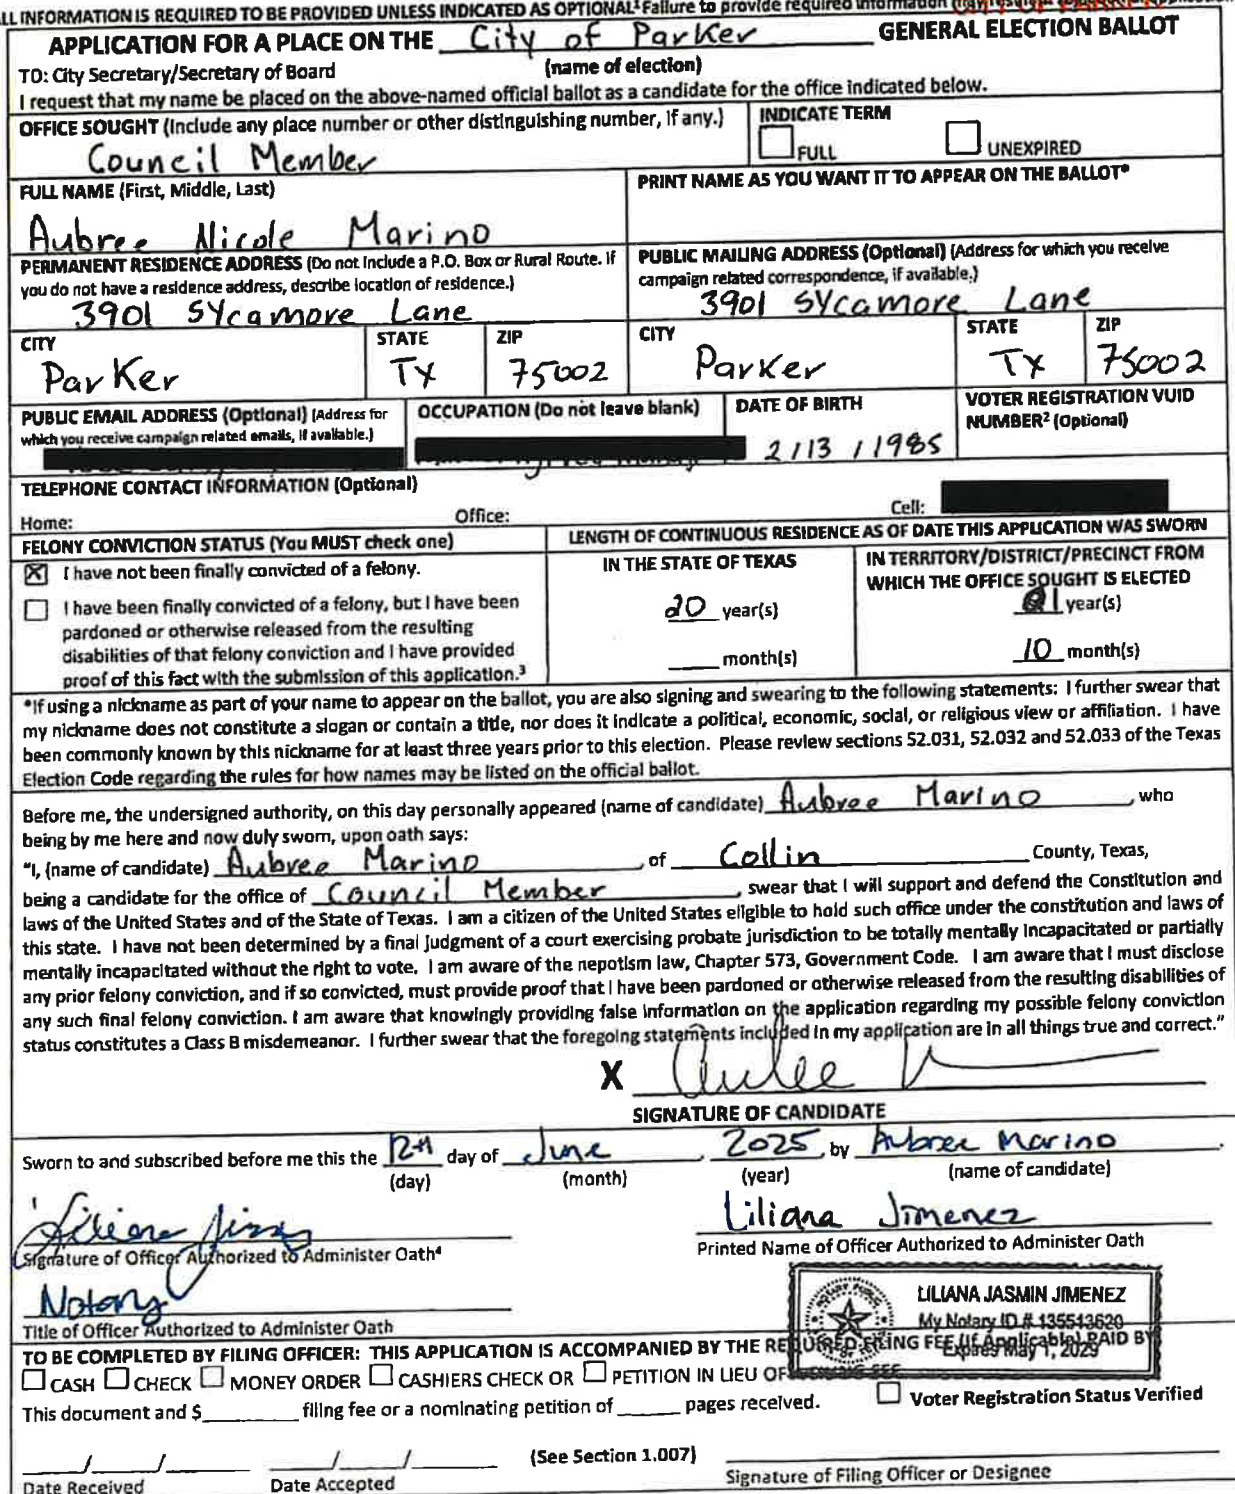 ALL INFORMATION IS REQUIRED TO BE PROVIDED UNLESS INDICATED AS OPTIONAL¹ Failure to provide required information
APPLICATION FOR A PLACE ON THE City of Parker GENERAL ELECTION BALLOT
(name of election)
TO: City Secretary/Secretary of Board
I request that my name be placed on the above-named official ballot as a candidate for the office indicated below.
OFFICE SOUGHT (Include any place number or other distinguishing number, if any.)
Council Member
INDICATE TERM
FULL UNEXPIRED
FULL NAME (First, Middle, Last)
Aubree Nicole Marino
PRINT NAME AS YOU WANT IT TO APPEAR ON THE BALLOT*
PERMANENT RESIDENCE ADDRESS (Do not include a P.O. Box or Rural Route. If
you do not have a residence address, describe location of residence.)
3901 Sycamore Lane
PUBLIC MAILING ADDRESS (Optional) (Address for which you receive
campaign related correspondence, if available.)
3901 Sycamore Lane
CITY STATE ZIP
Parker Tx 75002
CITY STATE ZIP
Parker Tx 75002
PUBLIC EMAIL ADDRESS (Optional) (Address for
which you receive campaign related emails, if available.)
OCCUPATION (Do not leave blank)
DATE OF BIRTH
2/13/1985
VOTER REGISTRATION VUID
NUMBER² (Optional)
TELEPHONE CONTACT INFORMATION (Optional)
Home: Office: Cell:
FELONY CONVICTION STATUS (You MUST check one)
☒ I have not been finally convicted of a felony.
I have been finally convicted of a felony, but I have been
pardoned or otherwise released from the resulting
disabilities of that felony conviction and I have provided
proof of this fact with the submission of this application.³
LENGTH OF CONTINUOUS RESIDENCE AS OF DATE THIS APPLICATION WAS SWORN
IN THE STATE OF TEXAS
20 year(s)
month(s)
IN TERRITORY/DISTRICT/PRECINCT FROM
WHICH THE OFFICE SOUGHT IS ELECTED
year(s)
10 month(s)
*If using a nickname as part of your name to appear on the ballot, you are also signing and swearing to the following statements: I further swear that
my nickname does not constitute a slogan or contain a title, nor does it indicate a political, economic, social, or religious view or affiliation. I have
been commonly known by this nickname for at least three years prior to this election. Please review sections 52.031, 52.032 and 52.033 of the Texas
Election Code regarding the rules for how names may be listed on the official ballot.
Before me, the undersigned authority, on this day personally appeared (name of candidate) Aubree Marino, who
being by me here and now duly sworn, upon oath says:
"I, (name of candidate) Aubree Marino, of Collin County, Texas,
being a candidate for the office of Council Member, swear that I will support and defend the Constitution and
laws of the United States and of the State of Texas. I am a citizen of the United States eligible to hold such office under the constitution and laws of
this state. I have not been determined by a final judgment of a court exercising probate jurisdiction to be totally mentally incapacitated or partially
mentally incapacitated without the right to vote. I am aware of the nepotism law, Chapter 573, Government Code. I am aware that I must disclose
any prior felony conviction, and if so convicted, must provide proof that I have been pardoned or otherwise released from the resulting disabilities of
any such final felony conviction. I am aware that knowingly providing false information on the application regarding my possible felony conviction
status constitutes a Class B misdemeanor. I further swear that the foregoing statements included in my application are in all things true and correct."
X
SIGNATURE OF CANDIDATE
Sworn to and subscribed before me this the 12th day of June, 2025, by Aubree Marino.
(day) (month) (year) (name of candidate)
Liliana Jimenez
Signature of Officer Authorized to Administer Oath⁴
Printed Name of Officer Authorized to Administer Oath
Notary
Title of Officer Authorized to Administer Oath
LILIANA JASMIN JIMENEZ
My Notary ID # 135513620
Expires May 1, 2029
TO BE COMPLETED BY FILING OFFICER: THIS APPLICATION IS ACCOMPANIED BY THE REQUIRED FILING FEE (If Applicable) PAID BY
CASH CHECK MONEY ORDER CASHIERS CHECK OR PETITION IN LIEU OF
This document and $______ filing fee or a nominating petition of ______ pages received.
Voter Registration Status Verified
(See Section 1.007)
Date Received Date Accepted Signature of Filing Officer or Designee